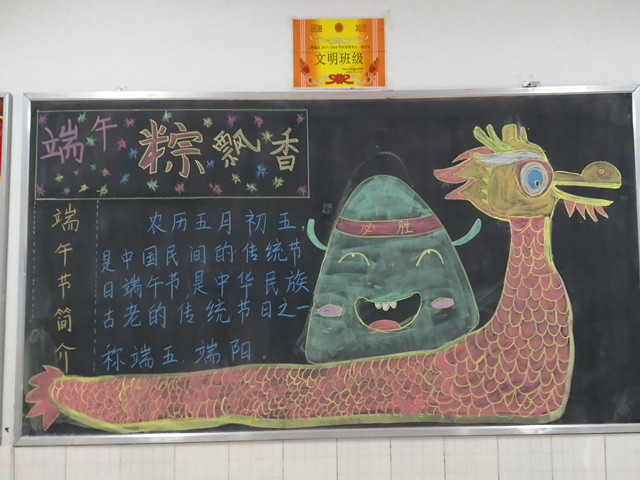 文明班级
端午 粽飘香
端午节简介
农历五月初五,
是中国民间的传统节
日端午节,是中华民族
古老的传统节日之一
称端五,端阳.
必胜